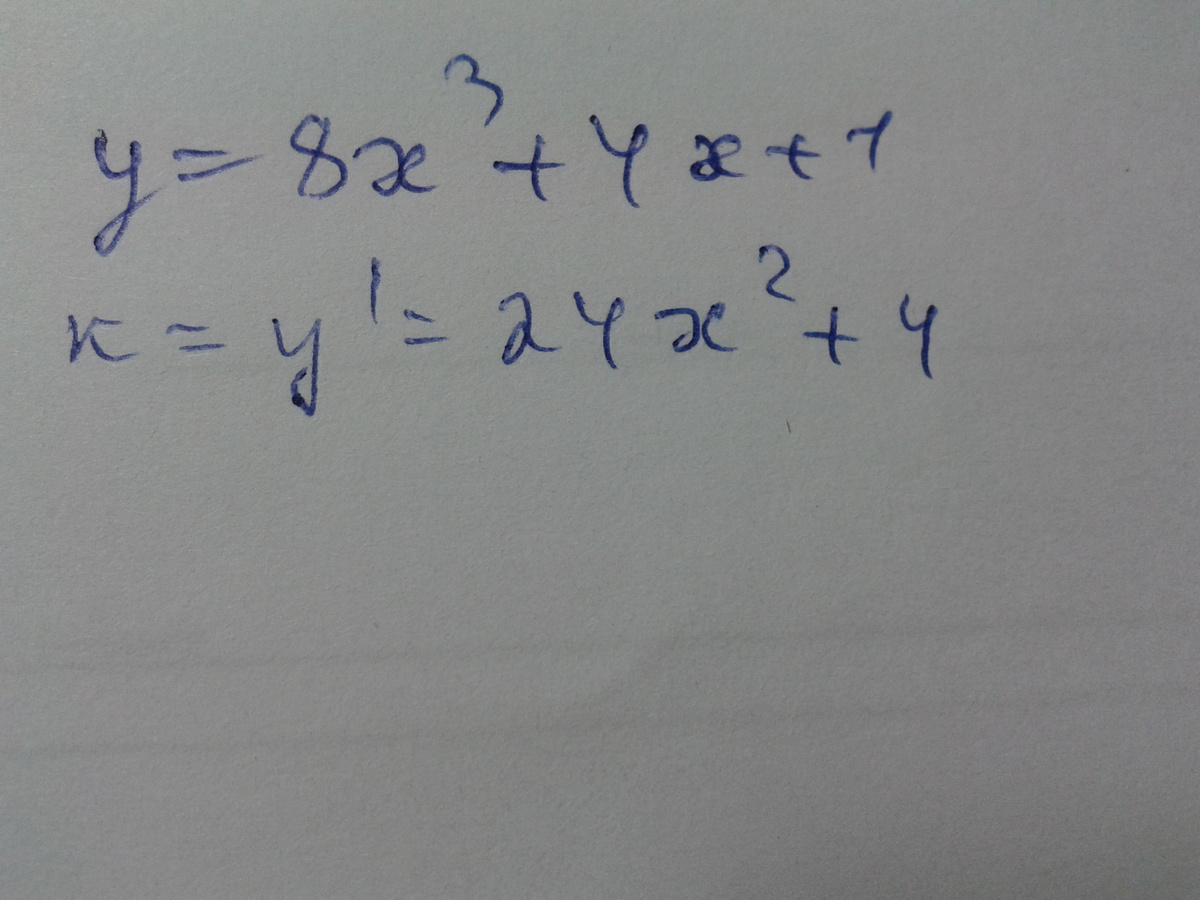 y = 8x³ + 4x + 1
к = y' = 24x² + 4